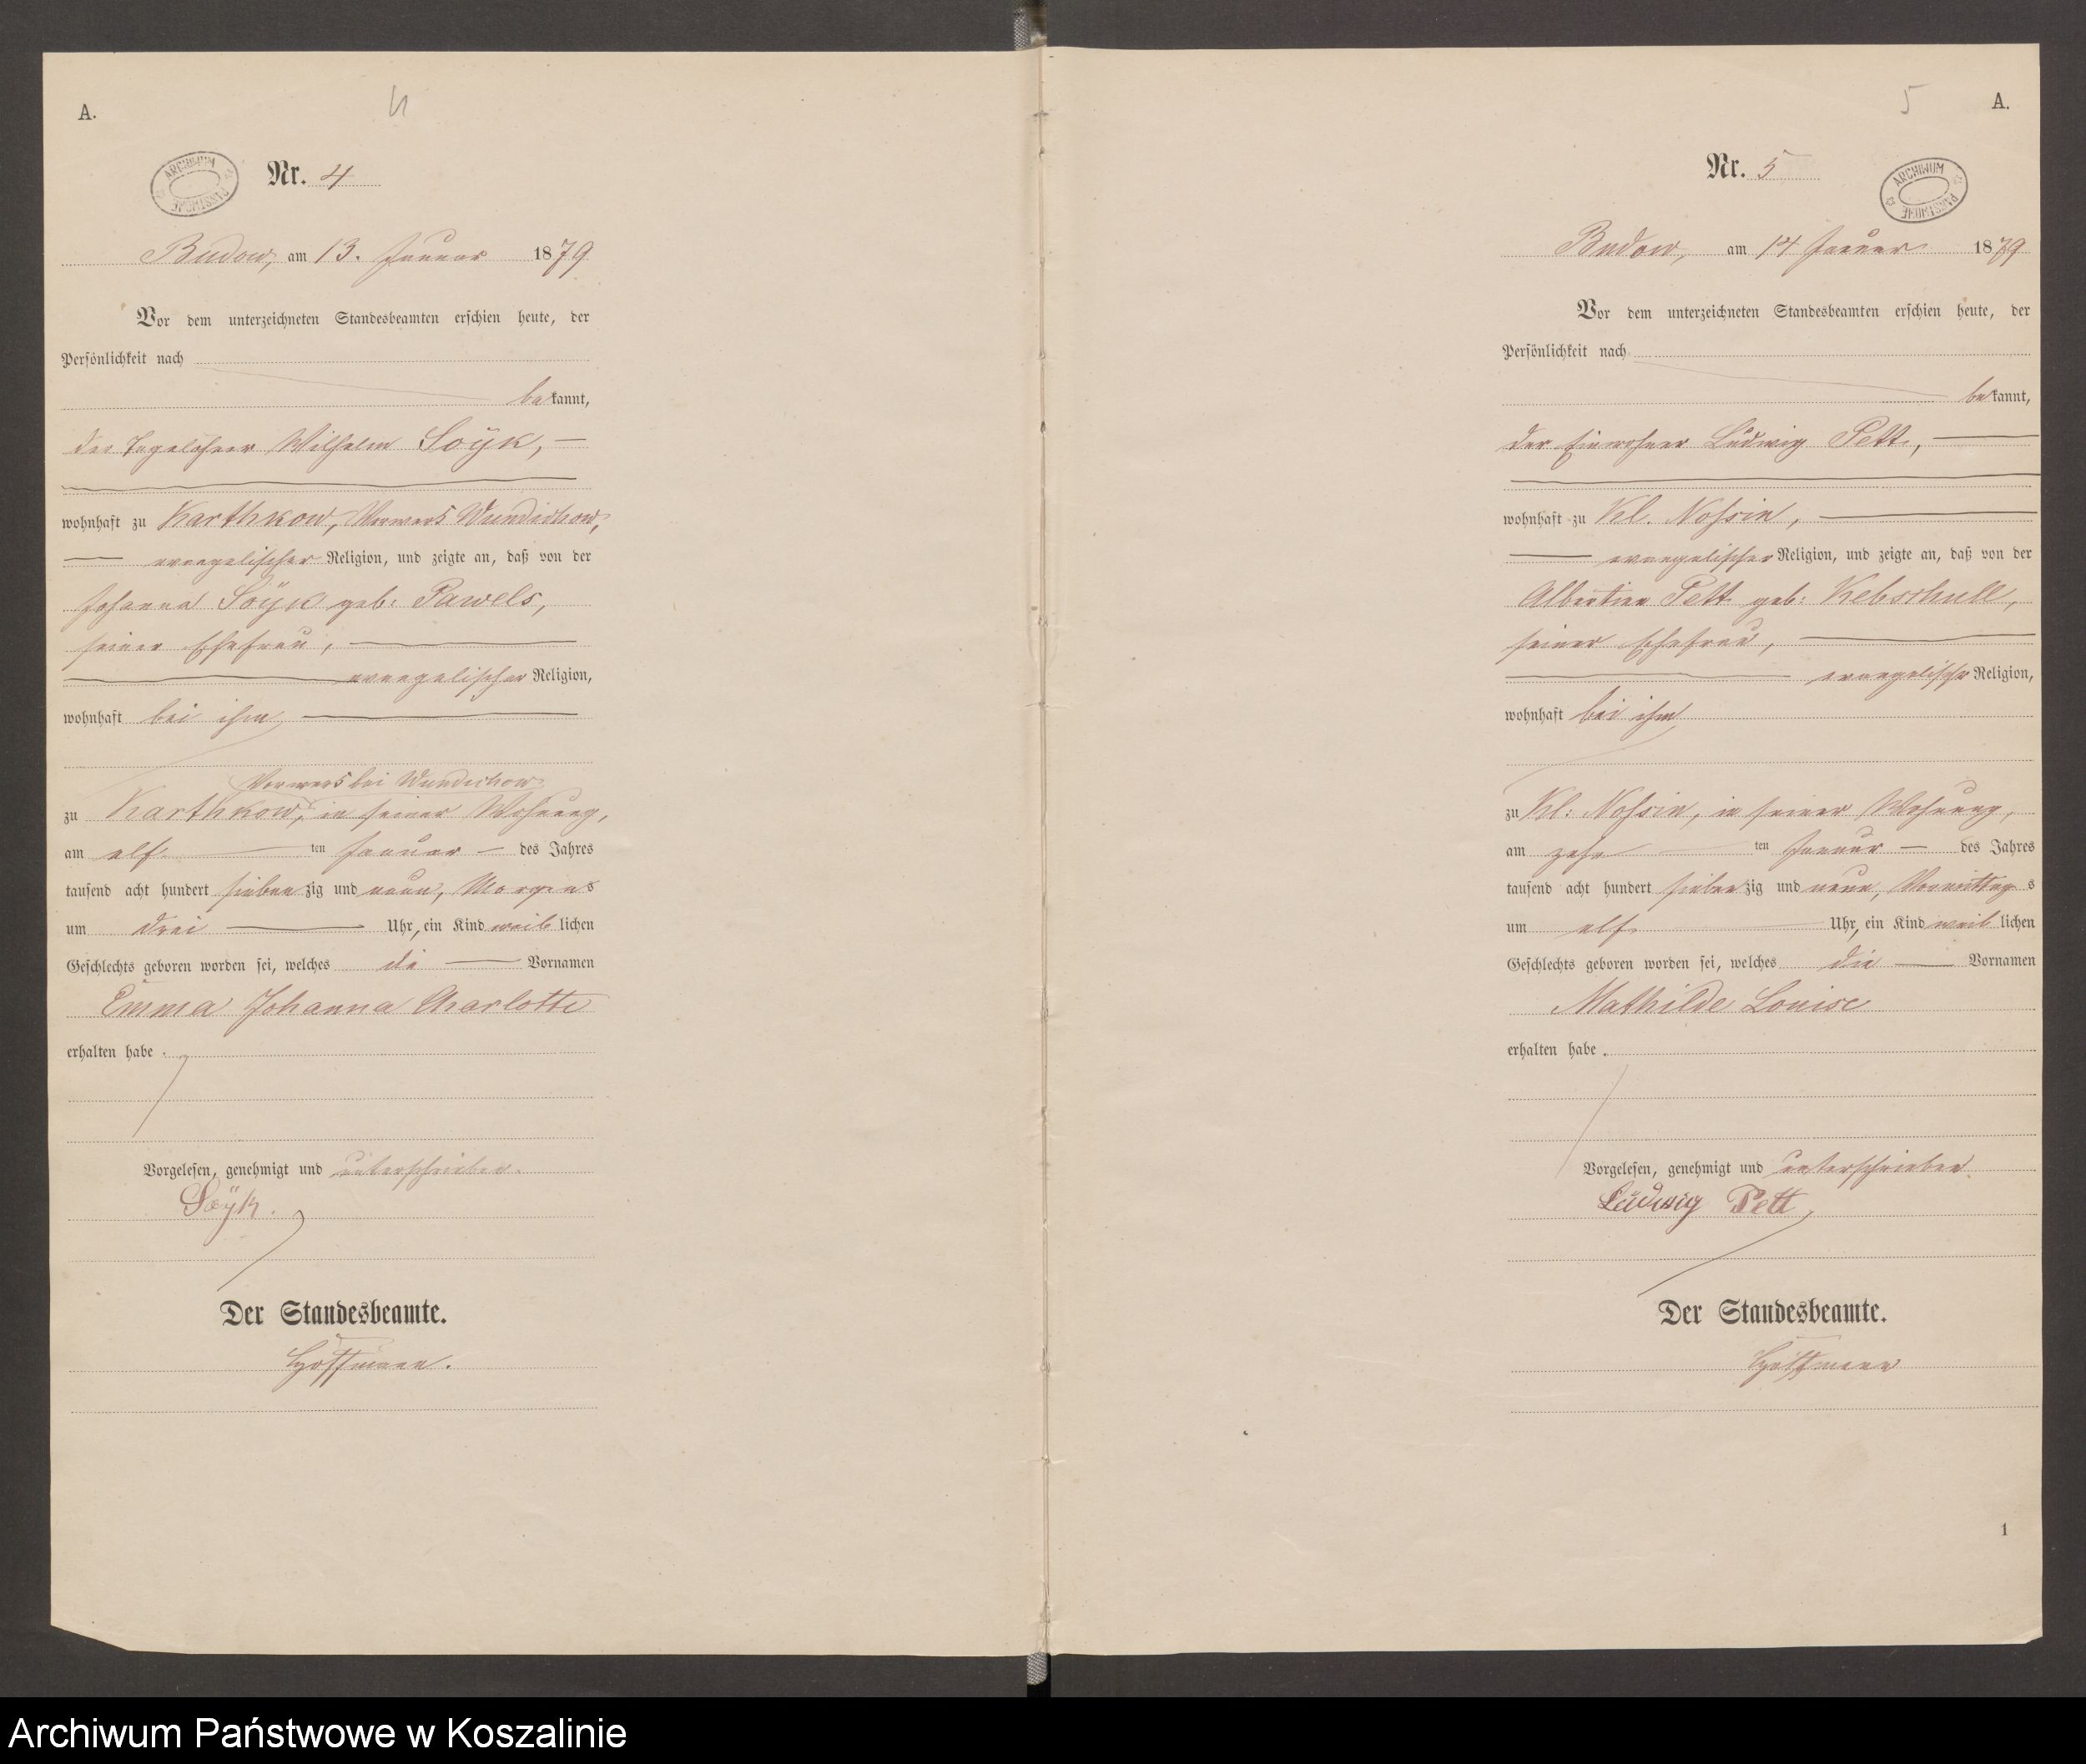 A.
4
ARCHIWUM PAŃSTWOWE
Nr. 4
Budow, am 13. Januar 1879
Vor dem unterzeichneten Standesbeamten erschien heute, der
Persönlichkeit nach
bekannt,
der Tagelöhner Wilhelm Soÿk, —
wohnhaft zu Karthkow, Vorwerk Wundichow,
— evangelischer Religion, und zeigte an, daß von der
Johanna Soÿk geb: Pawels,
seiner Ehefrau, —
— evangelischer Religion,
wohnhaft bei ihm, —
Vorwerk bei Wundichow
zu Karthkow, in seiner Wohnung,
am elf — ten Januar — des Jahres
tausend acht hundert siebenzig und neun, Morgens
um drei — Uhr, ein Kind weiblichen
Geschlechts geboren worden sei, welches die — Vornamen
Emma Johanna Charlotte
erhalten habe.
Vorgelesen, genehmigt und unterschrieben.
Soÿk.
Der Standesbeamte.
Hoffmann.
5
A.
Nr. 5
ARCHIWUM PAŃSTWOWE
Budow, am 14 Januar 1879
Vor dem unterzeichneten Standesbeamten erschien heute, der
Persönlichkeit nach
bekannt,
der Einwohner Ludwig Pett, —
wohnhaft zu Kl. Nossin, —
— evangelischer Religion, und zeigte an, daß von der
Albertine Pett geb: Kebschull,
seiner Ehefrau, —
— evangelischer Religion,
wohnhaft bei ihm
zu Kl: Nossin, in seiner Wohnung,
am zehn — ten Januar — des Jahres
tausend acht hundert siebenzig und neun, Vormittags
um elf — Uhr, ein Kind weiblichen
Geschlechts geboren worden sei, welches die — Vornamen
Mathilde Louise
erhalten habe.
Vorgelesen, genehmigt und unterschrieben
Ludwig Pett
Der Standesbeamte.
Hoffmann
1
Archiwum Państwowe w Koszalinie